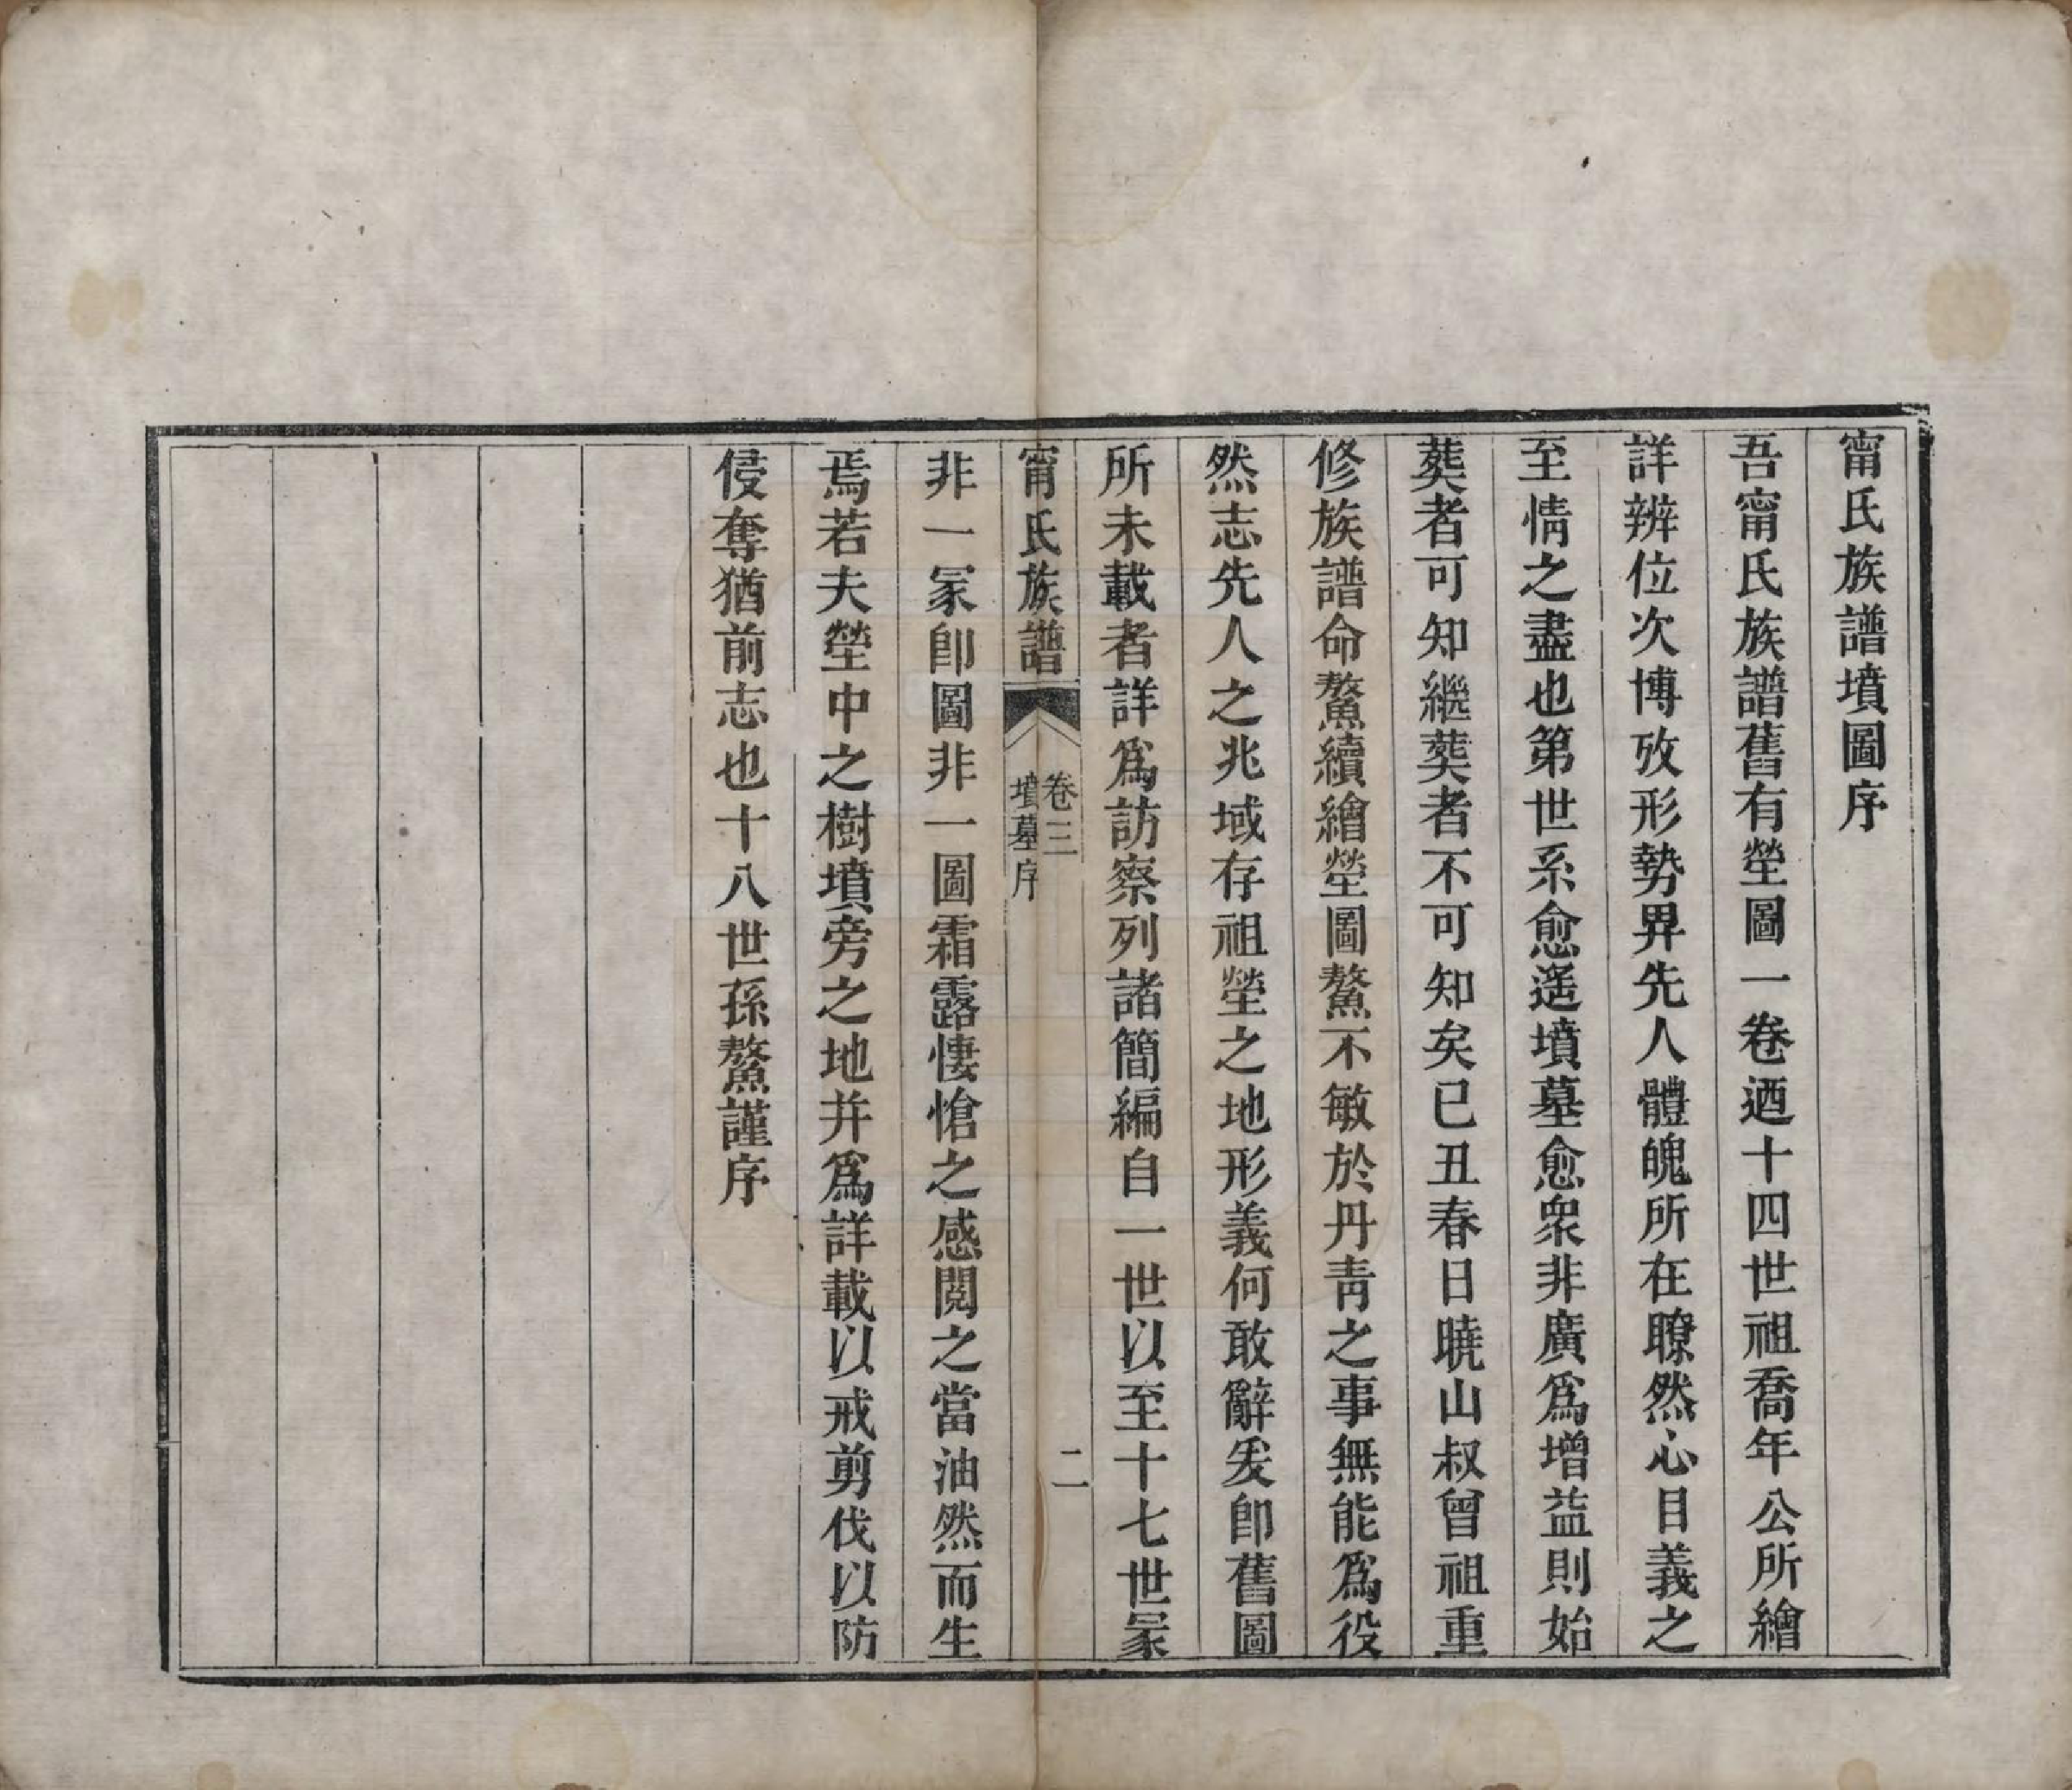 甯氏族譜墳圖序
吾甯氏族譜舊有塋圖一卷迺十四世祖喬年公所繪
詳辨位次博攷形勢畀先人體魄所在瞭然心目義之
至情之盡也第世系愈遙墳墓愈衆非廣爲增益則始
葬者可知繼葬者不可知矣己丑春日曉山叔曾祖重
修族譜命鰲續繪塋圖鰲不敏於丹青之事無能爲役
然志先人之兆域存祖塋之地形義何敢辭爰卽舊圖
所未載者詳爲訪察列諸簡編自一世以至十七世冢
甯氏族譜
卷三
墳墓序
二
非一冢卽圖非一圖霜露悽愴之感閱之當油然而生
焉若夫塋中之樹墳旁之地并爲詳載以戒剪伐以防
侵奪猶前志也十八世孫鰲謹序